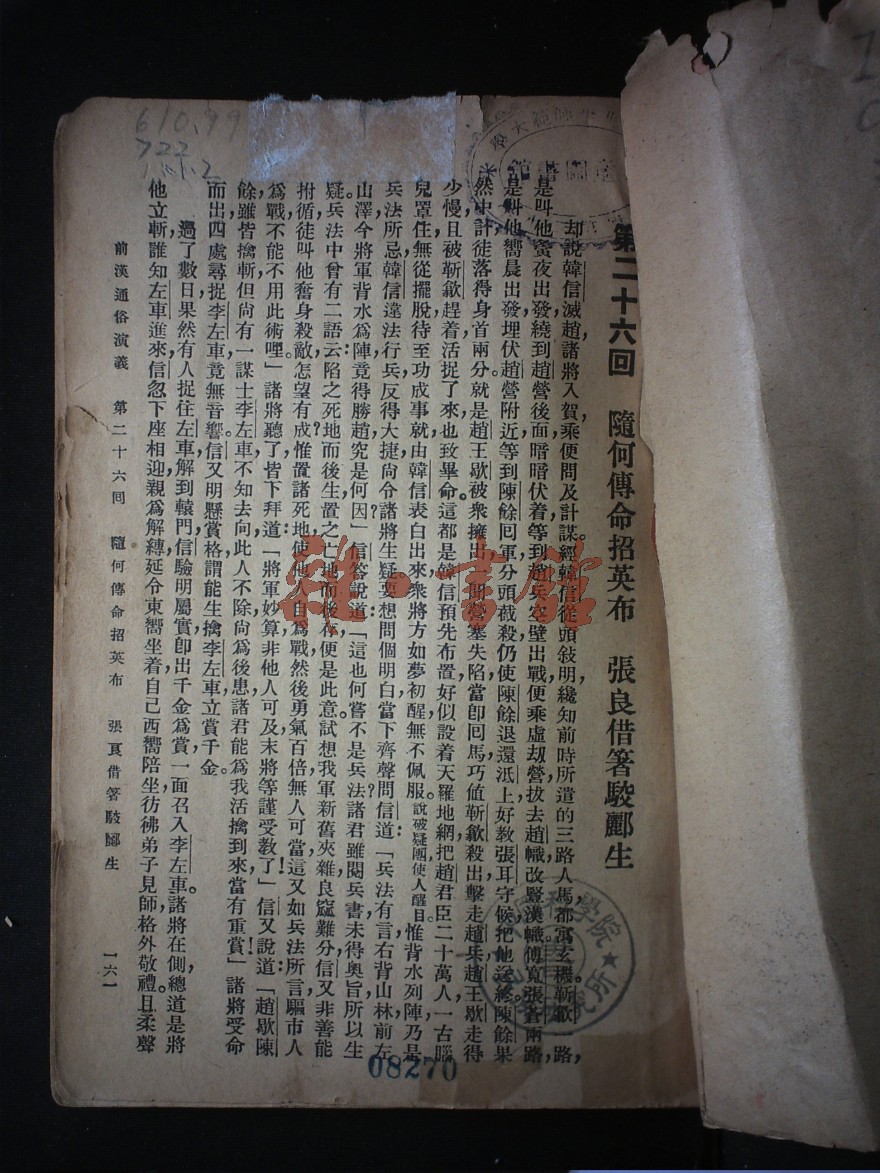 第二十六回　隨何傳命招英布　張良借箸駁酈生
却說韓信滅趙，諸將入賀，乘便問及計謀。經韓信從頭敍明，纔知前時所遣的三路人馬，都寓玄機。靳歙一路，
是叫他夤夜出發，繞到趙營後面，暗暗伏着，等到趙兵空壁出戰，便乘虛刼營，拔去趙幟，改豎漢幟。傅寬張蒼兩路，
是叫他嚮晨出發，埋伏趙營附近，等到陳餘囘軍，分頭截殺，仍使陳餘退還泜上，好教張耳守候，把他送終。陳餘果
然中計，徒落得身首兩分。就是趙王歇被衆擁出，一聞營塞失陷，當卽囘馬，巧值靳歙殺出，擊走趙兵，趙王歇走得
少慢，且被靳歙趕着，活捉了來，也致畢命。這都是韓信預先布置，好似設着天羅地網，把趙君臣二十萬人，一古腦
兒罩住，無從擺脫，待至功成事就，由韓信表白出來，衆將方如夢初醒，無不佩服。說破疑團，使人醒目。惟背水列陣，乃是
兵法所忌，韓信違法行兵，反得大捷，尚令諸將生疑，要想問個明白，當下齊聲問信道：「兵法有言，右背山林，前左
山澤，今將軍背水爲陣，竟得勝趙，究是何因？」信答說道：「這也何嘗不是兵法，諸君雖閱兵書，未得奧旨，所以生
疑。兵法中曾有二語云：陷之死地而後生，置之亡地而後存，便是此意。試想我軍新舊夾雜，良窳難分，信又非善能
拊循，徒叫他奮身殺敵，怎望有成？惟置諸死地，使他人自爲戰，然後勇氣百倍，無人可當，這又如兵法所言，驅市人
爲戰，不能不用此術哩。」諸將聽了，皆下拜道：「將軍妙算，非他人可及，末將等謹受教了！」信又說道：「趙歇陳
餘，雖皆擒斬，但尚有一謀士李左車，不知去向，此人不除，尚爲後患，諸君能爲我活擒到來，當有重賞！」諸將受命
而出，四處尋捉李左車，竟無音響，信又明懸賞格，謂能生擒李左車，立賞千金。
過了數日，果然有人捉住左車，解到轅門，信驗明屬實，卽出千金爲賞，一面召入李左車。諸將在側，總道是將
他立斬，誰知左車進來，信忽下座相迎，親爲解縛，延令東嚮坐着，自己西嚮陪坐，彷彿弟子見師，格外敬禮。且柔聲
前漢通俗演義　第二十六囘　隨何傳命招英布　張良借箸駁酈生　一六一
610.99
722
08270